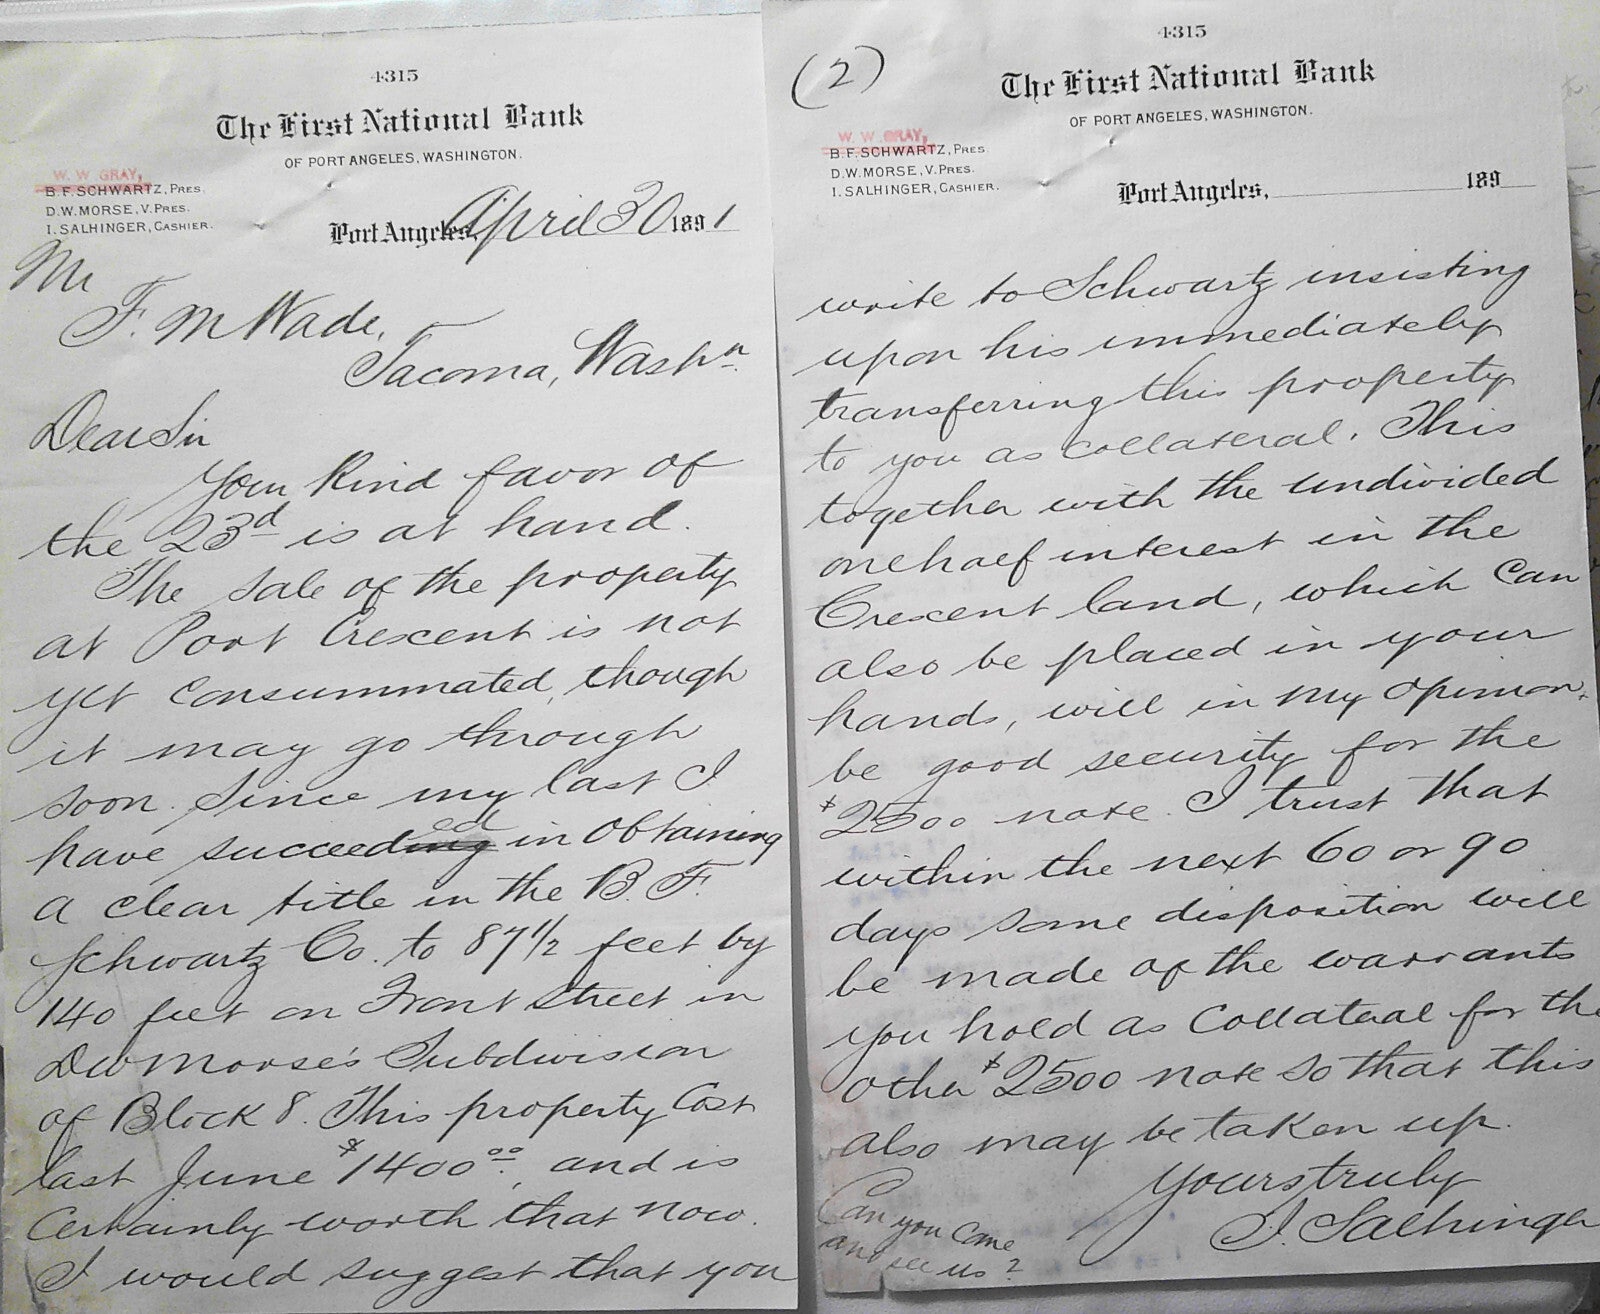 4315
The First National Bank
OF PORT ANGELES, WASHINGTON.
W. W. GRAY,
B. F. SCHWARTZ, PRES.
D. W. MORSE, V. PRES.
I. SALHINGER, CASHIER.
Port Angeles, April 30 1891
Mr
F. M Wade,
Tacoma, Washn.
Dear Sir
Your kind favor of
the 23d is at hand.
The sale of the property
at Port Crescent is not
yet consummated, though
it may go through
soon. Since my last I
have succeeding ed in obtaining
a clear title in the B. F.
Schwartz Co. to 87 1/2 feet by
140 feet on Front Street in
D W Morse's Subdivision
of Block 8. This property cost
last June $1400.00, and is
certainly worth that now.
I would suggest that you
(2)
4315
The First National Bank
OF PORT ANGELES, WASHINGTON.
W. W. GRAY,
B. F. SCHWARTZ, PRES.
D. W. MORSE, V. PRES.
I. SALHINGER, CASHIER.
Port Angeles, 189
write to Schwartz insisting
upon his immediately
transferring this property
to you as collateral. This
together with the undivided
one half interest in the
Crescent land, which can
also be placed in your
hands, will in my opinion,
be good security for the
$2500 note. I trust that
within the next 60 or 90
days some disposition will
be made of the warrants
you hold as collateral for the
other $2500 note so that this
also may be taken up.
Yours truly
I. Salhinger
Can you come
and see us?